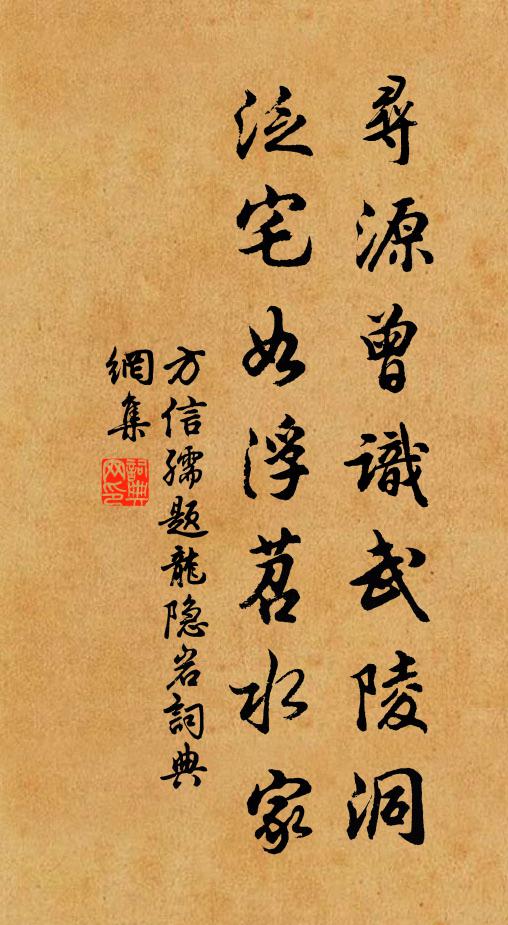 尋源曾識武陵洞
泛宅如浮苕水家
方信孺題龍隐岩詞典
網集
詞典
网印